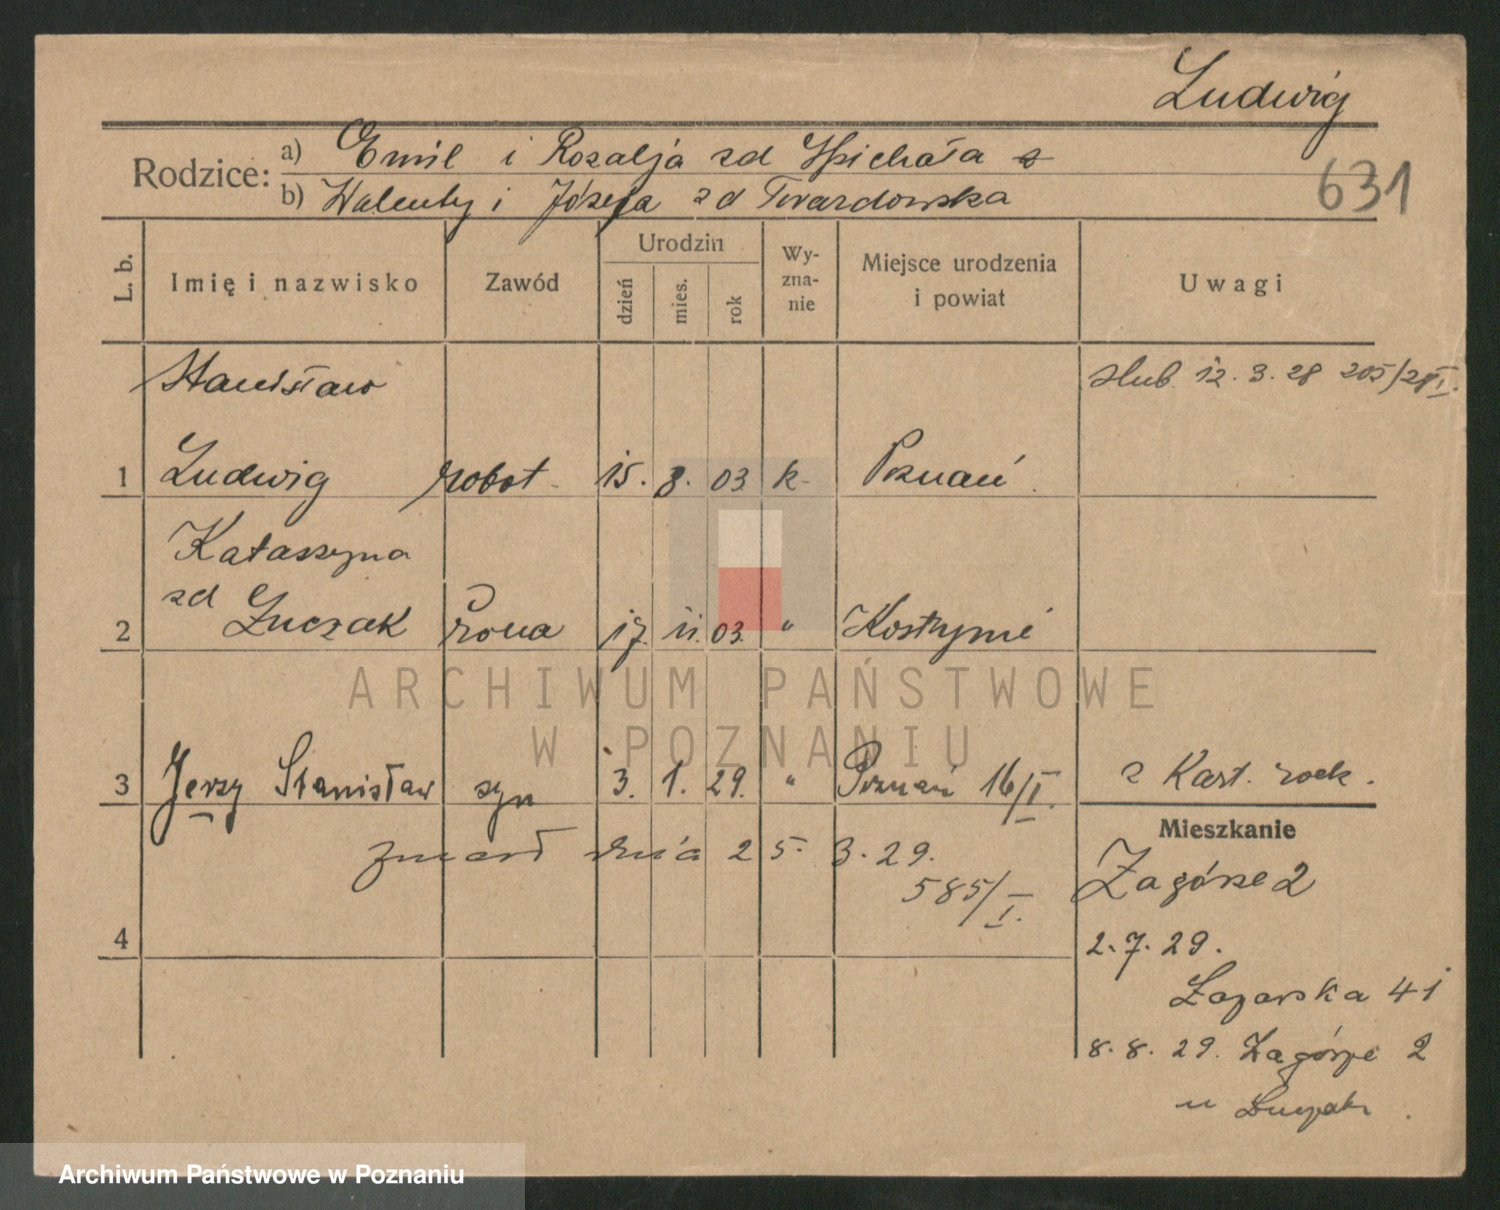 Ludwig
Rodzice: a) Emil i Rozalja zd
631
b) Walenty i Józefa zd Twardowska
L. b.
Imię i nazwisko
Zawód
Urodzin
dzień
mies.
rok
Wy-
zna-
nie
Miejsce urodzenia
i powiat
Uwagi
Stanisław
ślub 12. 3. 28 205/28 I.
1 Ludwig robot. 15. 8. 03 k. Poznań
Katarzyna
zd
2 Łuczak żona 17. 11. 03. "
3 Jerzy Stanisław syn 3. 1. 29. " Poznań 16/I. z Kart.
zmarł dnia 25. 3. 29.
585/I.
4
Mieszkanie
Zagórze 2
2. 7. 29.
Łazarska 41
8. 8. 29. Zagórze 2
u Łuczak
ARCHIWUM PAŃSTWOWE
W POZNANIU
Archiwum Państwowe w Poznaniu